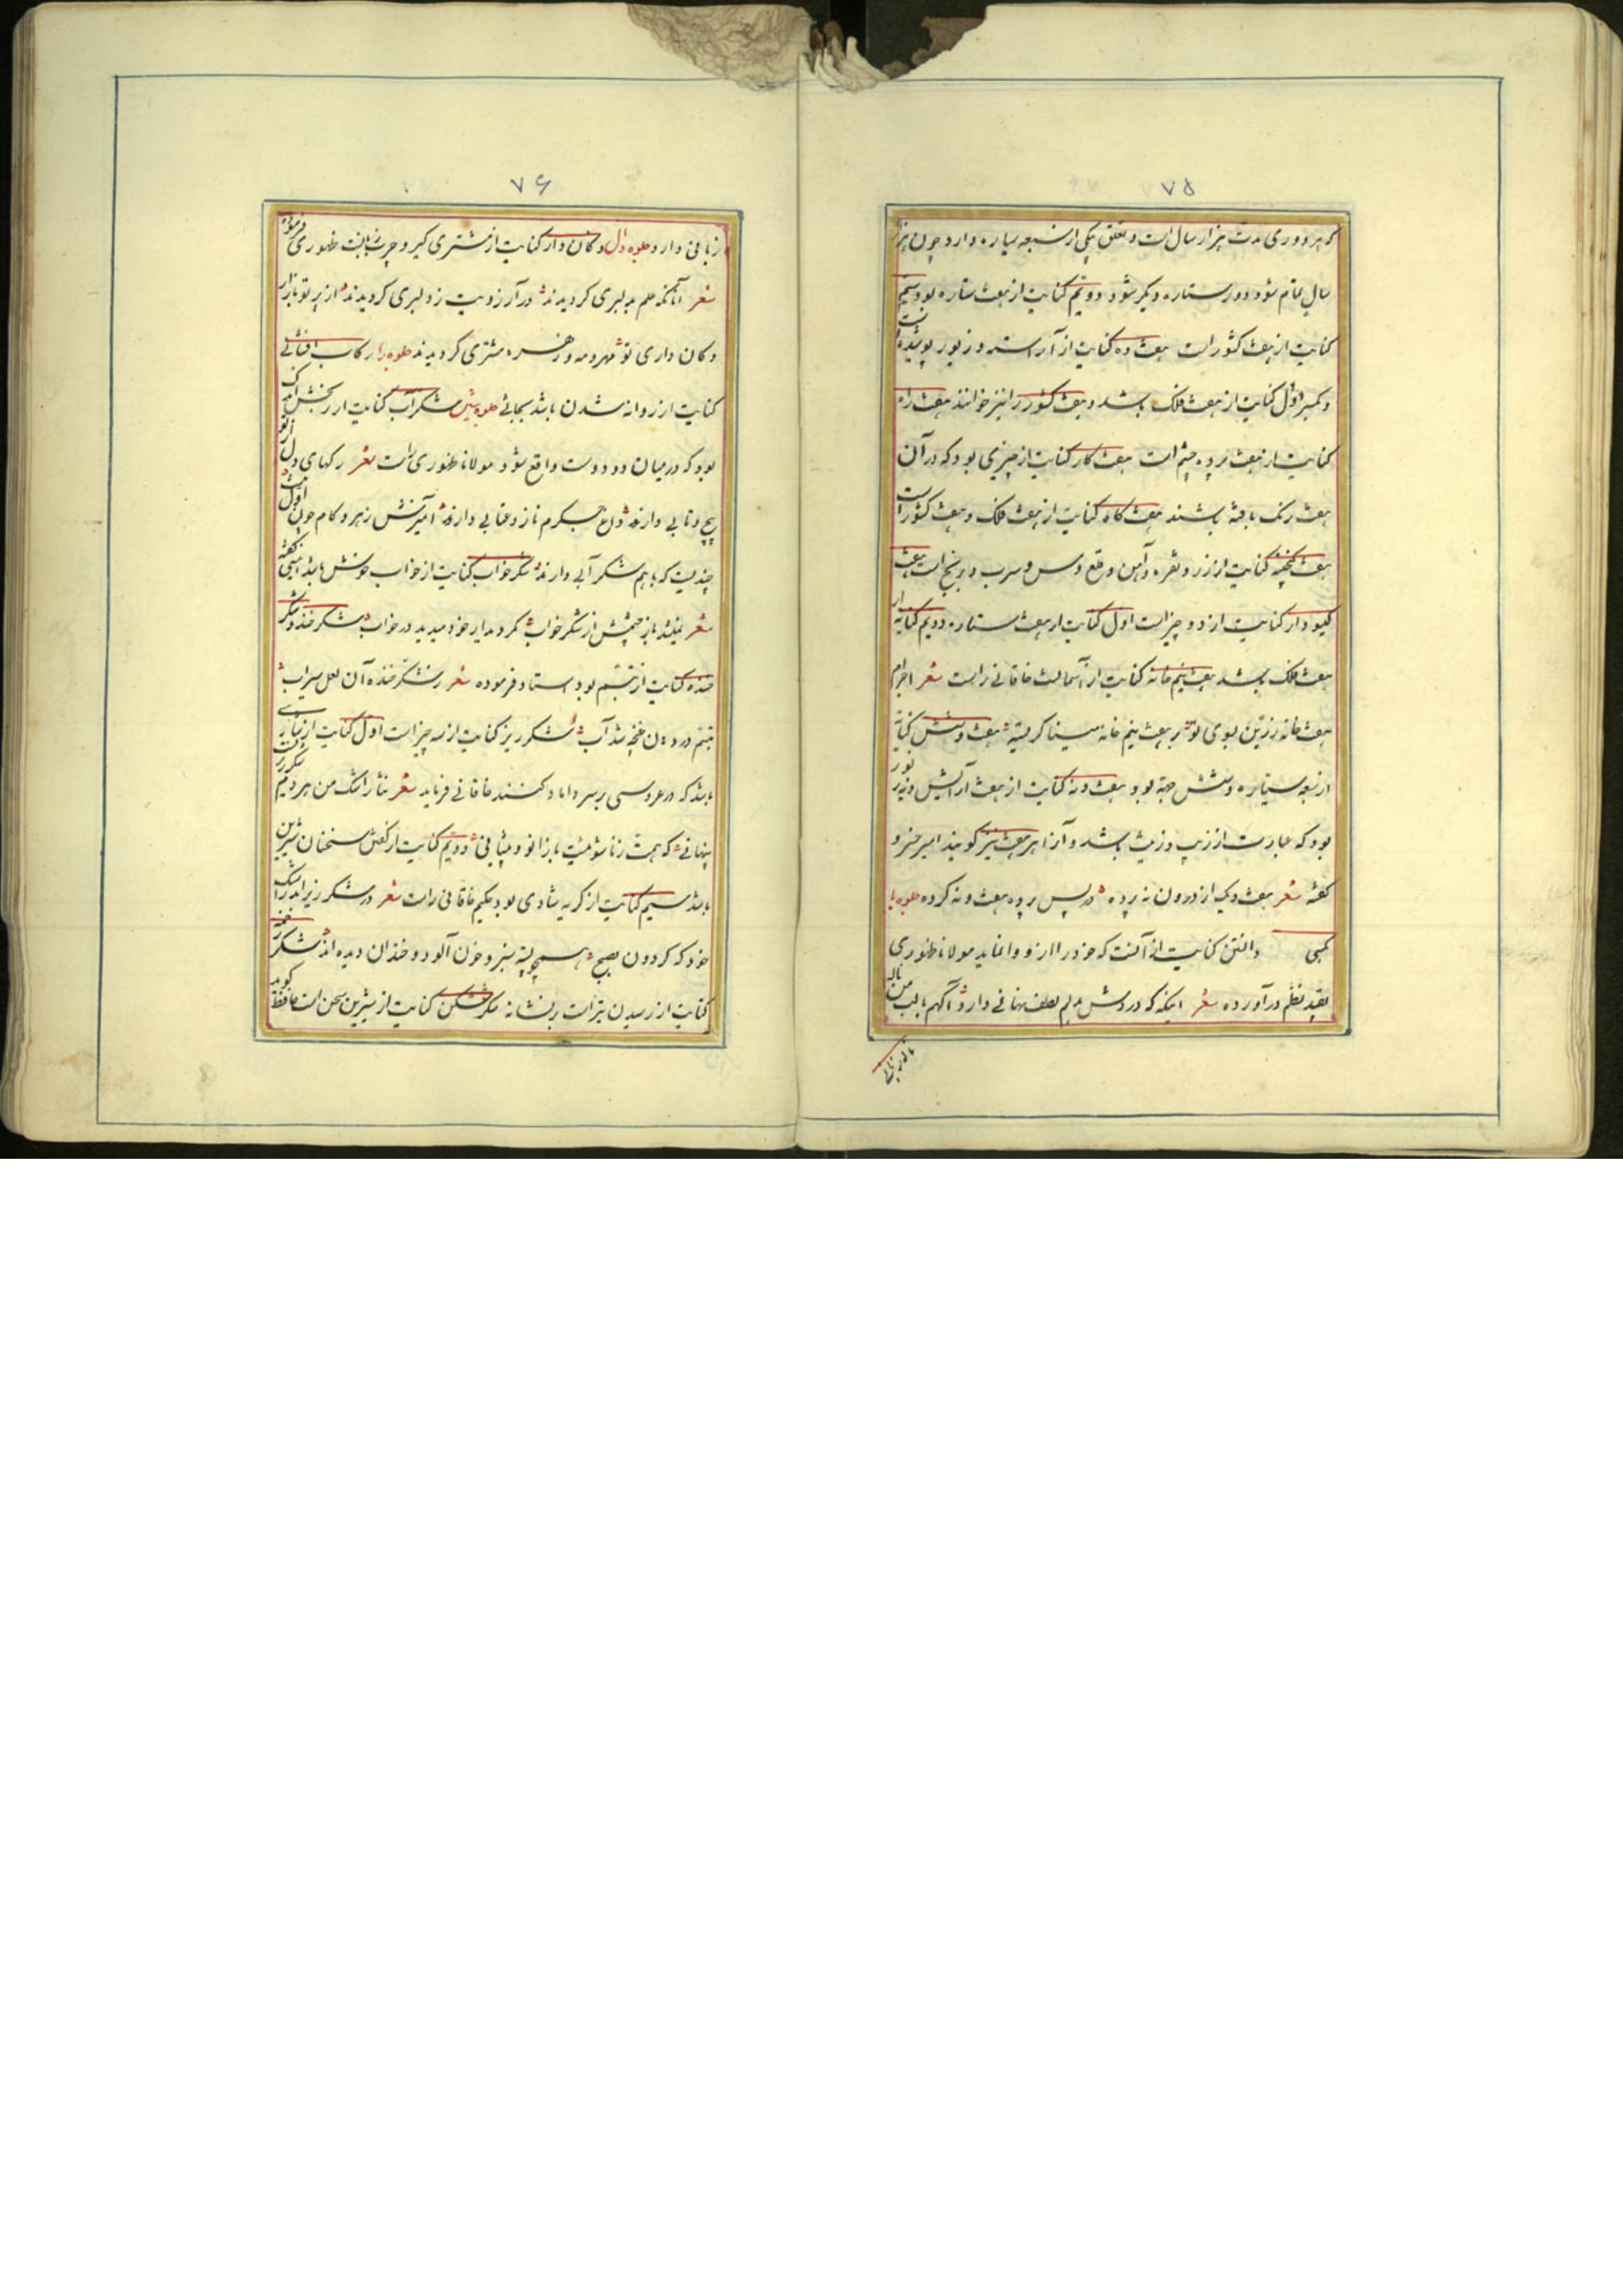 ۷۵
که هر دوری مدت هزار سال است و تعلق یکی از سبعه سیاره دارد چون هزار
سال تمام شود دور ستاره دیگر شود دویم کنایت از هفت ستاره بود سیم
کنایت از هفت کشور است هفت و ده کنایت از آراسته و زیور پوشیده است
و کسر اول کنایت از هفت فلک باشد و هفت کشور را نیز خوانند هفت راه
کنایت از هفت پرده چشم است هفت کار کنایت از چیزی بود که در آن
هفت رنگ بافته باشند هفت گاه کنایت از هفت فلک و هفت کشور است
هفت گنجینه کنایت از زر و نقره و آهن و قلع و مس و سرب و برنج است هفت
گیسودار کنایت از دو چیز است اول کنایت از هفت ستاره دویم کنایه از
هفت فلک باشد هفت نیم خانه کنایت از آسمانست خاقانی راست شعر اجرام
هفت خانه زرین بوی تو بر هفت نیم خانه مینا گریسته هفت و شش کنایه
از سبعه سیاره و شش جهة بود هفت و نه کنایت از هفت آرایش و نه زیور
بود که عبارت از زیب و زینت باشد و آنرا هر هفت نیز گویند امیر خسرو
گفته شعر هفت و یک از درون نه پرده در پس پرده هفت و نه کرده جلوه با
کسی داشتن کنایت از آنست که خود را ازو وانماید مولانا ظهوری
بقید نظم در آورده شعر اینکه که در دوش دلم لطف نهانی دارد آگهم با لب من ناله
۷۶
زبانی دارد جلوه دال دکان دار کنایت از مشتری گیر و چرب زبانست ظهوری فرموده
شعر آنانکه علم بدلبری گردیدند در آرزویت ز دلبری گردیدند از پرتو بازار
دکان داری تو مهر و مه و زهره مشتری گردیدند جلوه را رکاب افشانی
کنایت از روانه شدن باشد بجائی جلوه شین شکراب کنایت از رنجش اندک
بود که در میان دو دوست واقع شود مولانا ظهوری راست شعر رگهای دل از تو
پیچ و تابی دارند داغ جگرم ناز و عتابی دارند آمیزش زهر و کام چون اول نیست
چندیست که با هم شکرآبی دارند شکرخواب کنایت از خواب خوش باشد امینی گفته
شعر نمیشد باز چشمش از شکر خواب مگر دیدار خود میدید در خواب شکرخند و شکر
خنده کنایت از تبسم بود استاد فرموده شعر ز شکر خنده آن لعل سیراب
تبسم در دهن غنچه شد آب شکرریز کنایت از سه چیز است اول کنایت از نثاری
باشد که در عروسی بر سر داماد کنند خاقانی فرماید شعر نثار اشک من هر دم شکرریزیست
پنهانی که همت را زناشوئیست با زانو و پیشانی دویم کنایت از گفتن سخنان شیرین
باشد سیم کنایت از گریه شادی بود حکیم خاقانی راست شعر در شکرریزند ز اشک
خود که گردون صبح همچو پسته سبز و خون آلود و خندان دیده اند شکر زخمه
کنایت از رسیدن تیر است بر نشانه شکرشکن کنایت از شیرین سخن است حافظ گوید